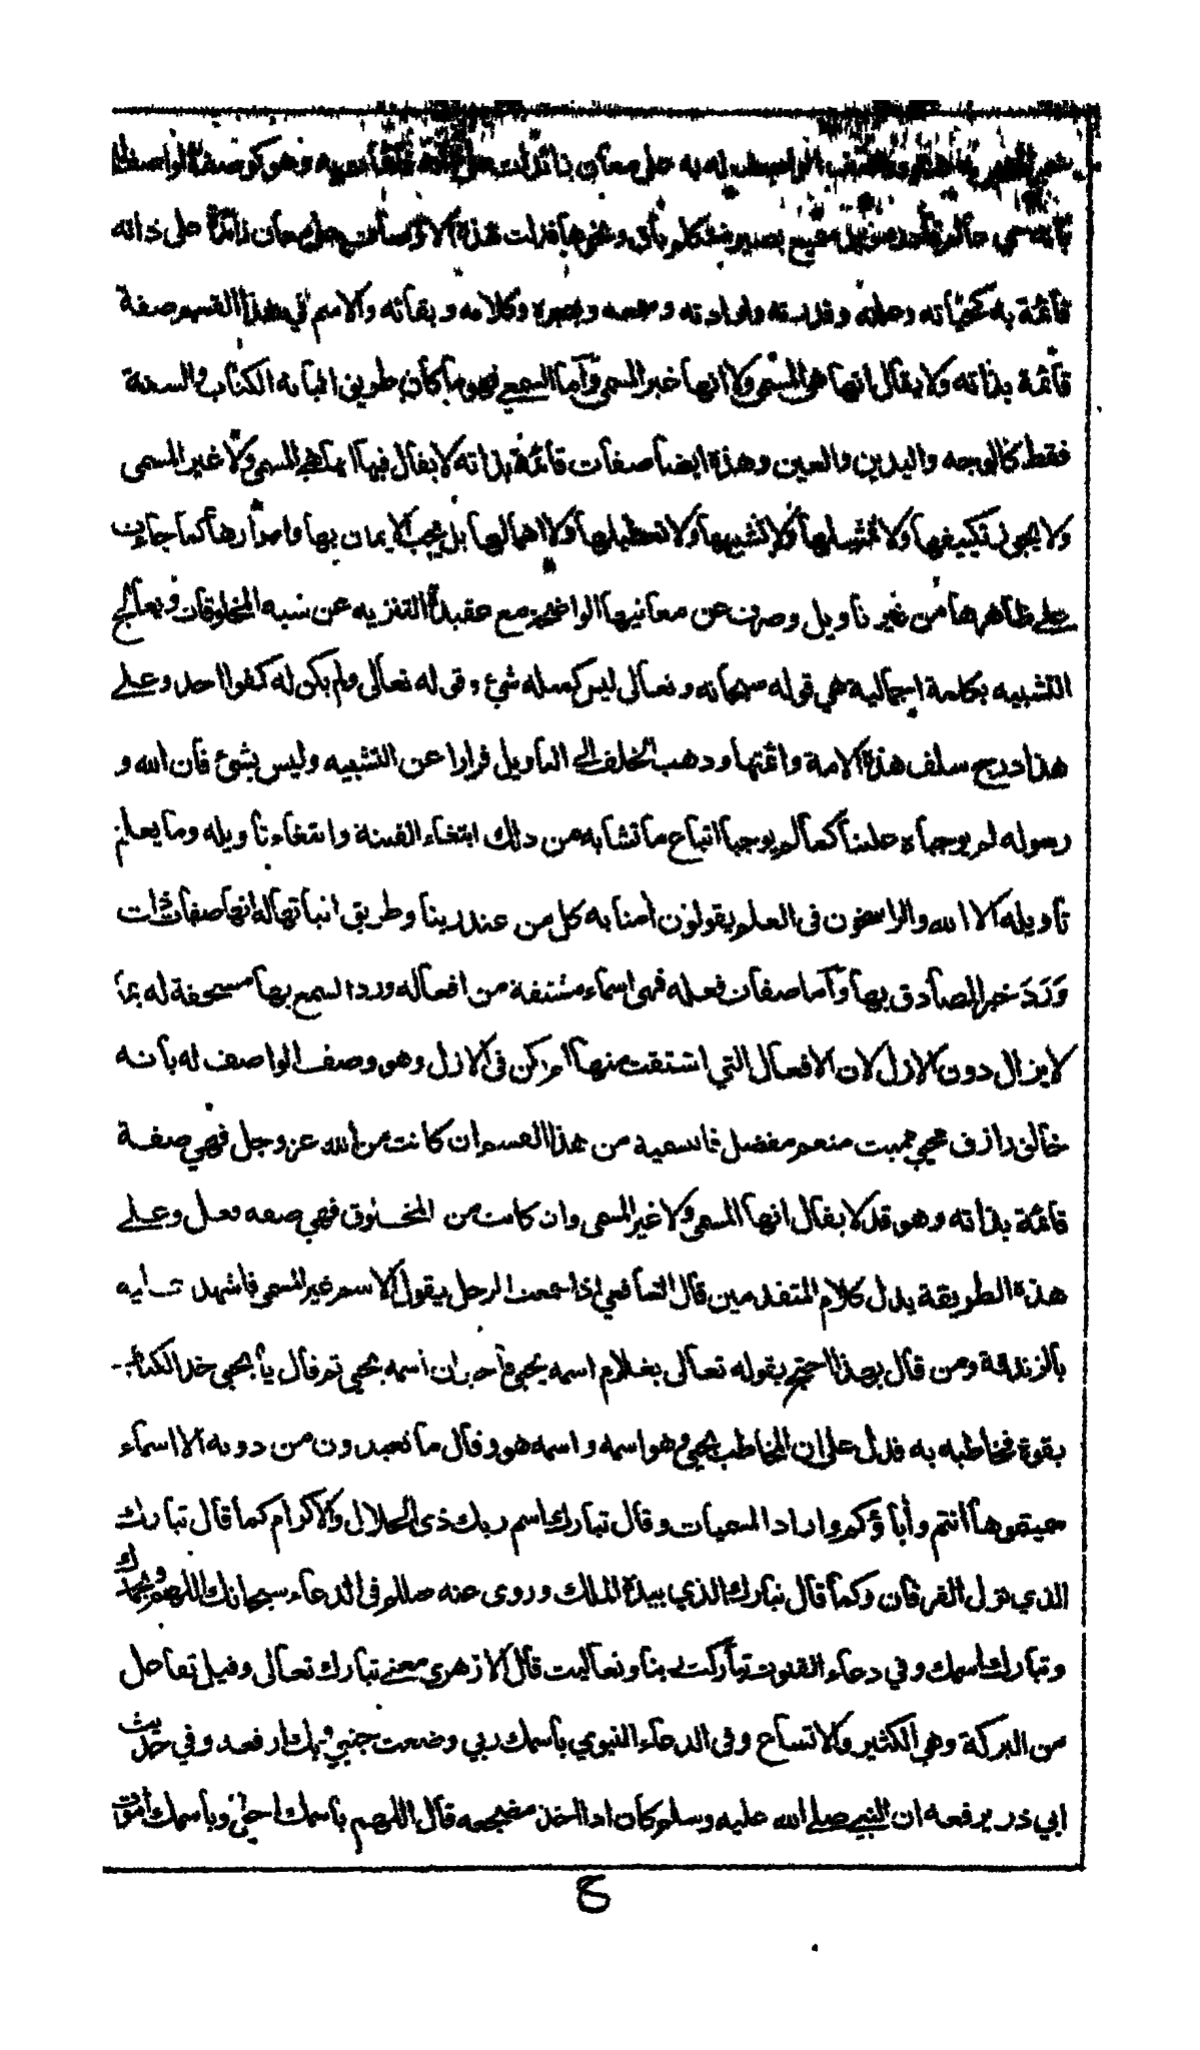 الواصف له به على معان زائدات على وهو كوصف الواصف له
بأنه حي عالم قادر مريد سميع بصير متكلم باق وغيرها فدلت هذه الاوصاف على معان زائدة على ذاته
قائمة به كحياته وعلمه وقدرته وارادته وسمعه وبصره وكلامه وبقائه والاسم في هذا القسم صفة
قائمة بذاته ولا يقال انها هي المسمى ولا انها غير المسمى وأما السمعي فهو ما كان طريق اثباته الكتاب والسنة
فقط كالوجه واليدين والعين وهذه ايضا صفات قائمة بذاته لا يقال فيها انها هي المسمى ولا غير المسمى
ولا يجوز تكييفها ولا تمثيلها ولا تشبيهها ولا تعطيلها ولا اهمالها بل يجب الايمان بها وامرارها كما جاءت
على ظاهرها من غير تاويل وصرف عن معانيها الواضحة مع عقيدة التنزيه عن شبه المخلوقات ويعالج
التشبيه بكلمة اجمالية هي قوله سبحانه وتعالى ليس كمثله شئ وقوله تعالى ولم يكن له كفوا احد وعلى
هذا درج سلف هذه الامة وائمتها وذهب الخلف الى التاويل فرارا عن التشبيه وليس بشئ فان الله و
رسوله لم يوجباه علينا كما لم يوجبا اتباع ما تشابه من ذلك ابتغاء الفتنة وابتغاء تأويله وما يعلم
تاويله الا الله والراسخون فى العلم يقولون امنا به كل من عند ربنا وطريق اثباتها له انها صفات ذات
وَرَدَ خبر الصادق بها وأما صفات فعله فهى اسماء مشتقة من افعاله ورد السمع بها مستحقة له بما
لا يزال دون الازل لان الافعال التي اشتقت منها لم تكن فى الازل وهو وصف الواصف له بأنه
خالق رازق محيي مميت منعم مفضل فالتسمية من هذا القسم ان كانت من الله عز وجل فهي صفة
قائمة بذاته وهو قد لا يقال انها المسمى ولا غير المسمى وان كانت من المخلوق فهي صفه فعل وعلى
هذه الطريقة يدل كلام المتقدمين قال الشافعي اذا سمعت الرجل يقول الاسم غير المسمى فاشهد عليه
بالزندقة ومن قال بهذا احتج بقوله تعالى بغلام اسمه يحيى فأخبر ان اسمه يحيى ثم قال يا يحيى خذ الكتاب
بقوة فخاطبه به فدل على ان المخاطب يحيى وهو اسمه واسمه هو وقال ما تعبدون من دونه الا اسماء
سميتموها انتم وأباؤكم واراد المسميات وقال تبارك اسم ربك ذى الجلال والاكرام كما قال تبارك
الذي نزل الفرقان وكما قال تبارك الذي بيده الملك وروى عنه صللم فى الدعاء سبحانك اللهم وبحمدك
وتبارك اسمك وفي دعاء القنوت تباركت ربنا وتعاليت قال الازهري معنى تبارك تعالى وقيل تفاعل
من البركة وهي الكثير والاتساع وفى الدعاء النبوي بأسمك ربي وضعت جنبي وبك ارفعه وفي حديث
ابي ذر يرفعه ان النبي صلى الله عليه وسلم كان اذا اخذ مضجعه قال اللهم بأسمك احيى وبأسمك أموت